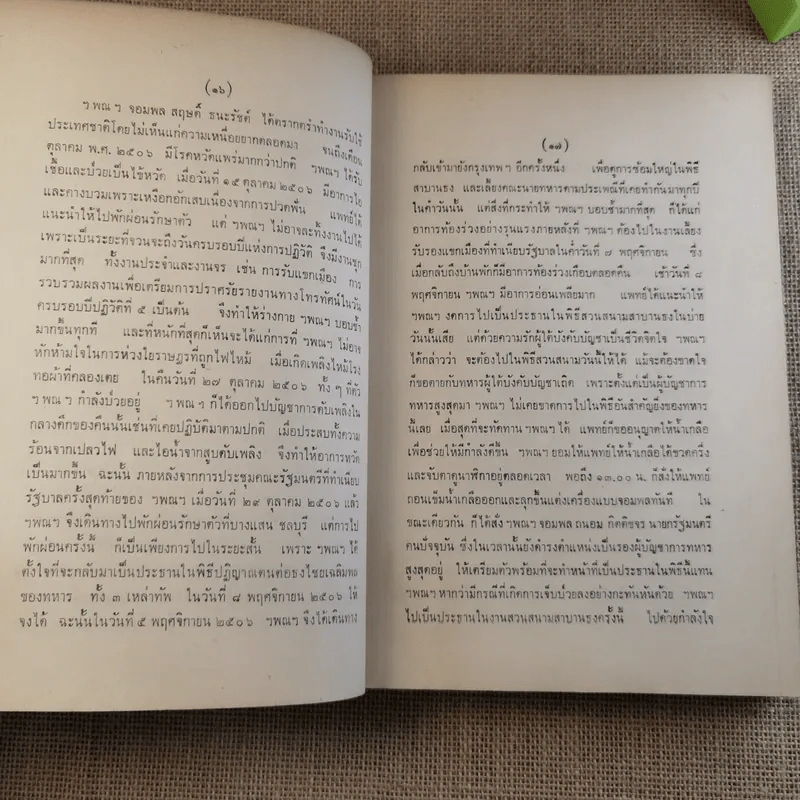 (๑๖)
ฯพณฯ จอมพล สฤษดิ์ ธนะรัชต์ ได้ตรากตรำทำงานรับใช้
ประเทศชาติโดยไม่เห็นแก่ความเหนื่อยยากตลอดมา จนถึงเดือน
ตุลาคม พ.ศ. ๒๕๐๖ มีโรคหวัดแพร่มากกว่าปกติ ฯพณฯ ได้รับ
เชื้อและป่วยเป็นไข้หวัด เมื่อวันที่ ๑๕ ตุลาคม ๒๕๐๖ มีอาการไอ
และคางบวมเพราะเหงือกอักเสบเนื่องจากการปวดฟัน แพทย์ได้
แนะนำให้ไปพักผ่อนรักษาตัว แต่ ฯพณฯ ไม่อาจละทิ้งงานไปได้
เพราะเป็นระยะที่จวนจะถึงวันครบรอบปีแห่งการปฏิวัติ จึงมีงานชุก
มากที่สุด ทั้งงานประจำและงานจร เช่น การรับแขกเมือง การ
รวบรวมผลงานเพื่อเตรียมการปราศรัยรายงานทางโทรทัศน์ในวัน
ครบรอบปีปฏิวัติที่ ๕ เป็นต้น จึงทำให้ร่างกาย ฯพณฯ บอบช้ำ
มากขึ้นทุกที และที่หนักที่สุดก็เห็นจะได้แก่การที่ ฯพณฯ ไม่อาจ
หักห้ามใจในการห่วงใยราษฎรที่ถูกไฟไหม้ เมื่อเกิดเพลิงไหม้โรง
ทอผ้าที่คลองเตย ในคืนวันที่ ๒๗ ตุลาคม ๒๕๐๖ ทั้ง ๆ ที่ตัว
ฯพณฯ กำลังป่วยอยู่ ฯพณฯ ก็ได้ออกไปบัญชาการดับเพลิงใน
กลางดึกของคืนนั้นเช่นที่เคยปฏิบัติมาตามปกติ เมื่อประสบทั้งความ
ร้อนจากเปลวไฟ และไอน้ำจากสูบดับเพลิง จึงทำให้อาการหวัด
เป็นมากขึ้น ฉะนั้น ภายหลังจากการประชุมคณะรัฐมนตรีที่ทำเนียบ
รัฐบาลครั้งสุดท้ายของ ฯพณฯ เมื่อวันที่ ๒๙ ตุลาคม ๒๕๐๖ แล้ว
ฯพณฯ จึงเดินทางไปพักผ่อนรักษาตัวที่บางแสน ชลบุรี แต่การไป
พักผ่อนครั้งนี้ ก็เป็นเพียงการไปในระยะสั้น เพราะ ฯพณฯ ได้
ตั้งใจที่จะกลับมาเป็นประธานในพิธีปฏิญาณตนต่อธงไชยเฉลิมพล
ของทหาร ทั้ง ๓ เหล่าทัพ ในวันที่ ๘ พฤศจิกายน ๒๕๐๖ ให้
จงได้ ฉะนั้นในวันที่ ๕ พฤศจิกายน ๒๕๐๖ ฯพณฯ จึงได้เดินทาง
(๑๗)
กลับเข้ามายังกรุงเทพฯ อีกครั้งหนึ่ง เพื่อดูการซ้อมใหญ่ในพิธี
สาบานธง และเลี้ยงคณะนายทหารตามประเพณีที่เคยทำกันมาทุกปี
ในค่ำวันนั้น แต่สิ่งที่กระทำให้ ฯพณฯ บอบช้ำมากที่สุด ก็ได้แก่
อาการท้องร่วงอย่างรุนแรงภายหลังที่ ฯพณฯ ต้องไปในงานเลี้ยง
รับรองแขกเมืองที่ทำเนียบรัฐบาลในค่ำวันที่ ๗ พฤศจิกายน ซึ่ง
เมื่อกลับถึงบ้านพักก็มีอาการท้องร่วงเกือบตลอดคืน เช้าวันที่ ๘
พฤศจิกายน ฯพณฯ มีอาการอ่อนเพลียมาก แพทย์ได้แนะนำให้
ฯพณฯ งดการไปเป็นประธานในพิธีสวนสนามสาบานธงในบ่าย
วันนั้นเสีย แต่ด้วยความรักผู้ใต้บังคับบัญชาเป็นชีวิตจิตใจ ฯพณฯ
ได้กล่าวว่า จะต้องไปในพิธีสวนสนามวันนี้ให้ได้ แม้จะต้องขาดใจ
ก็ขอตายกับทหารผู้ใต้บังคับบัญชาเถิด เพราะตั้งแต่เป็นผู้บัญชาการ
ทหารสูงสุดมา ฯพณฯ ไม่เคยขาดการไปในพิธีอันสำคัญยิ่งของทหาร
นี้เลย เมื่อสุดที่จะทัดทาน ฯพณฯ ได้ แพทย์ก็ขออนุญาตให้น้ำเกลือ
เพื่อช่วยให้มีกำลังดีขึ้น ฯพณฯ ยอมให้แพทย์ให้น้ำเกลือได้ขวดครึ่ง
และจับตาดูนาฬิกาอยู่ตลอดเวลา พอถึง ๑๓.๐๐ น. ก็สั่งให้แพทย์
ถอนเข็มน้ำเกลือออกและลุกขึ้นแต่งเครื่องแบบจอมพลทันที ใน
ขณะเดียวกัน ก็ได้สั่ง ฯพณฯ จอมพล ถนอม กิตติขจร นายกรัฐมนตรี
คนปัจจุบัน ซึ่งในเวลานั้นยังดำรงตำแหน่งเป็นรองผู้บัญชาการทหาร
สูงสุดอยู่ ให้เตรียมตัวพร้อมที่จะทำหน้าที่เป็นประธานในพิธีนี้แทน
ฯพณฯ หากว่ามีกรณีที่เกิดการเจ็บป่วยลงอย่างกะทันหันด้วย ฯพณฯ
ไปเป็นประธานในงานสวนสนามสาบานธงครั้งนี้ ไปด้วยกำลังใจ